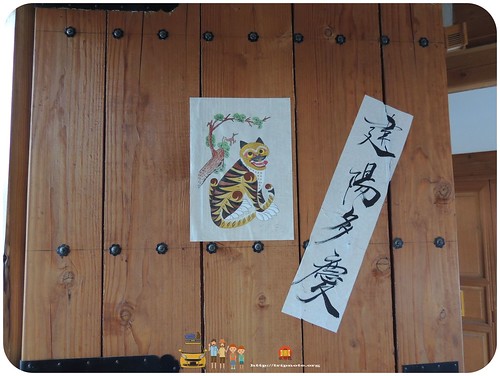 建陽多慶
http://tripnote.org